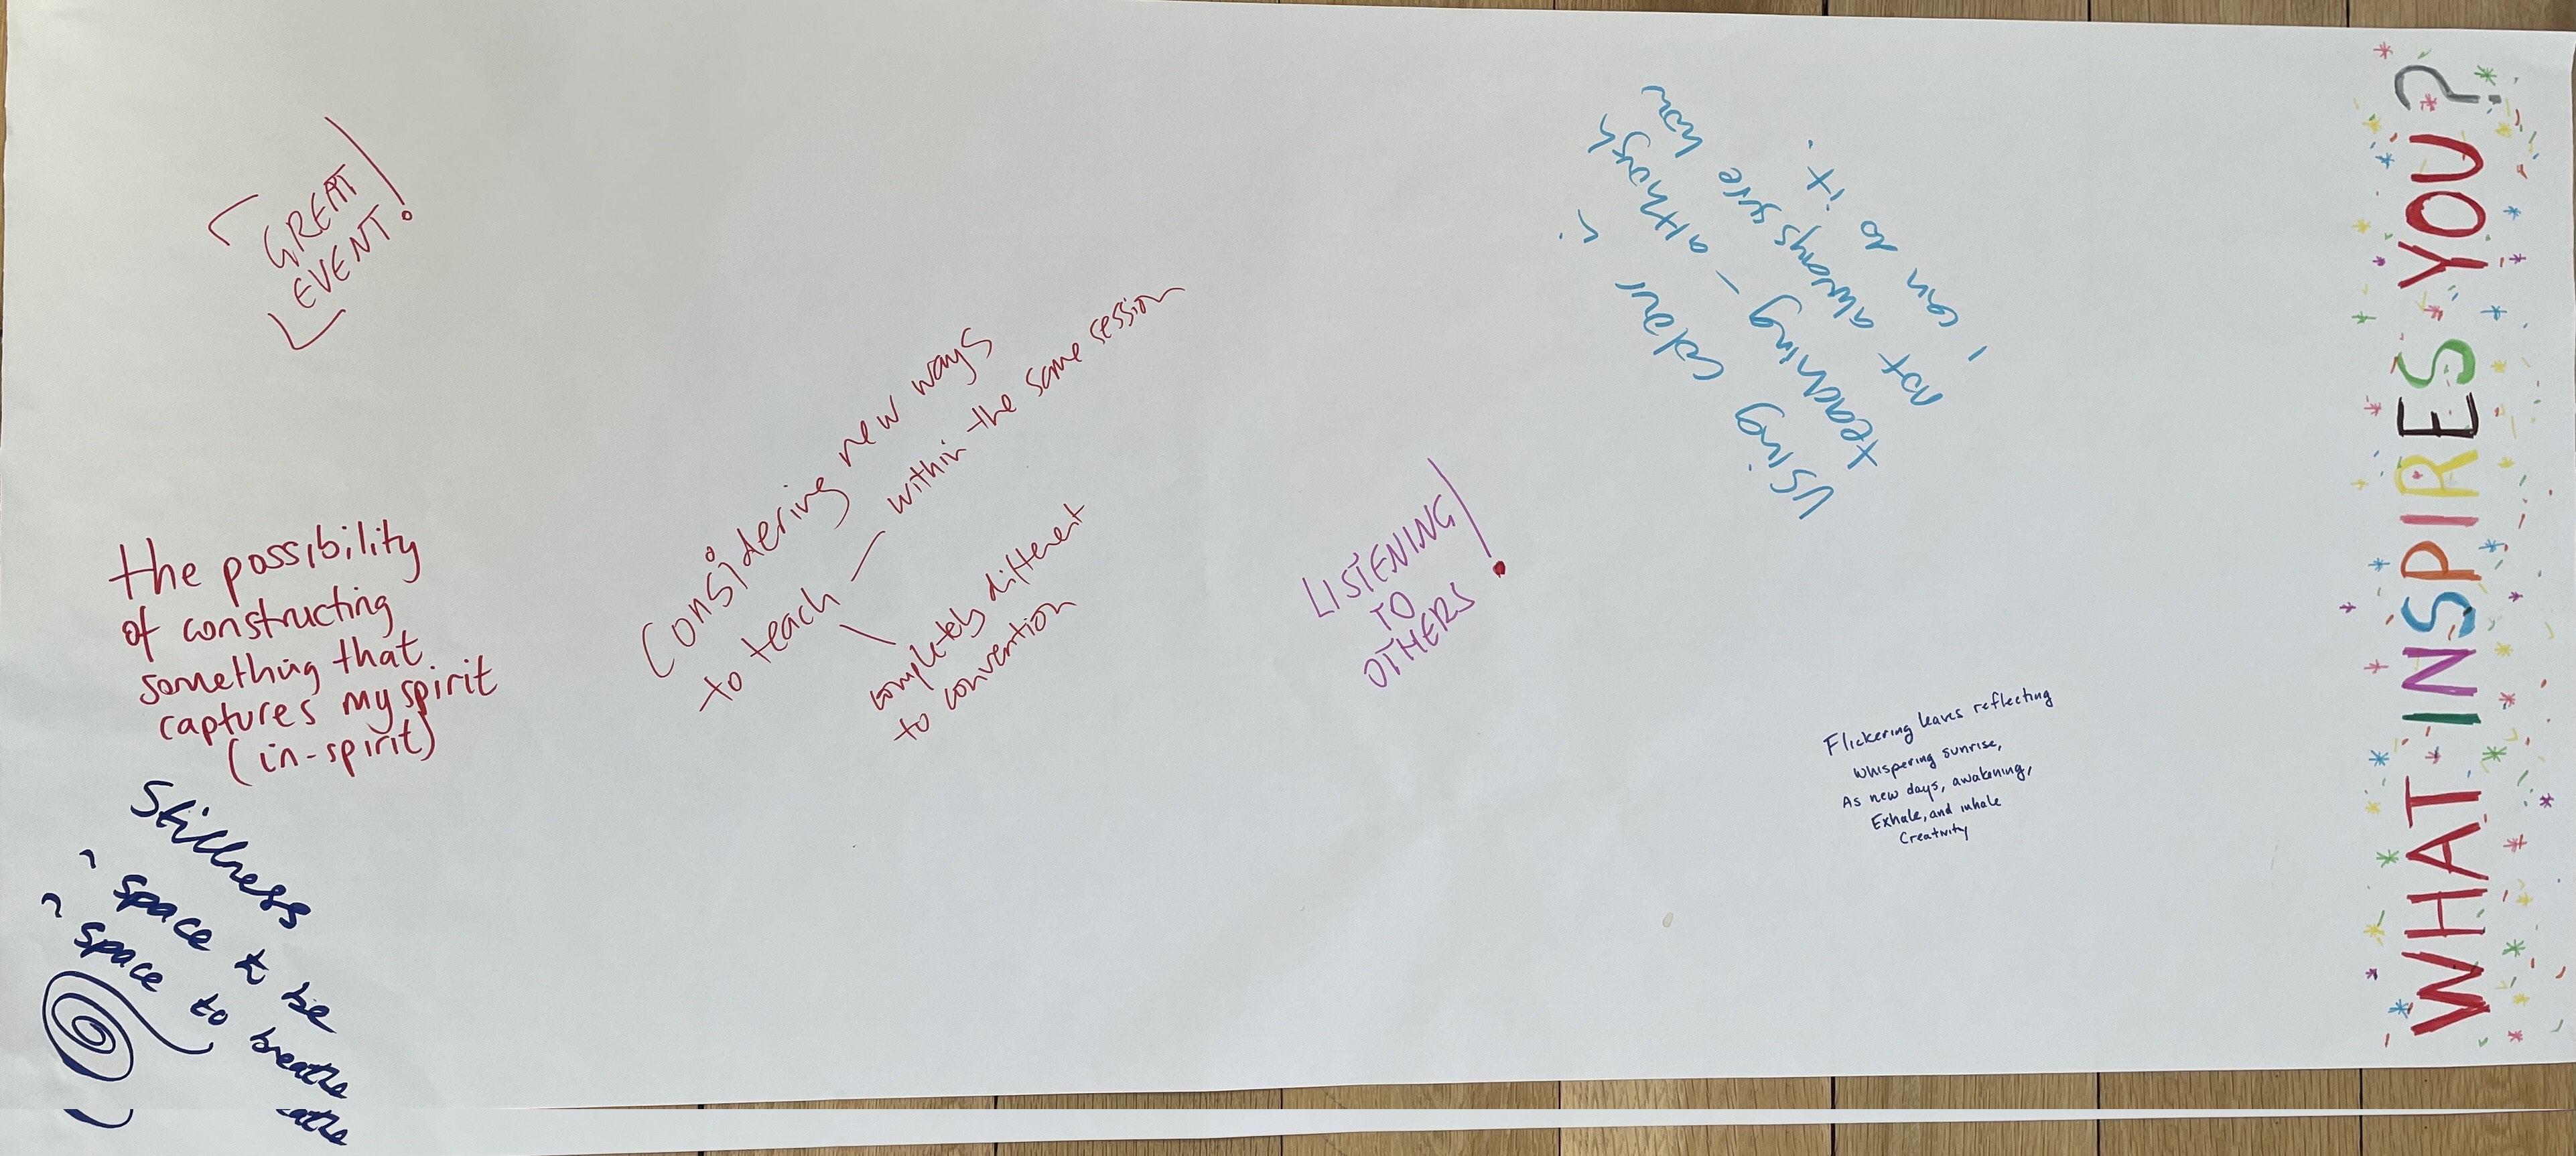 WHAT INSPIRES YOU?
GREAT
EVENT!
the possibility
of constructing
something that
captures my spirit
(in-spirit)
Stillness
space to be
space to breathe
Considering new ways
to teach — within the same session
completely different
to convention
LISTENING
TO
OTHERS!
Using colour in
teaching - although
not always sure how
I can do it.
Flickering leaves reflecting
whispering sunrise,
As new days, awakening,
Exhale, and inhale
Creativity